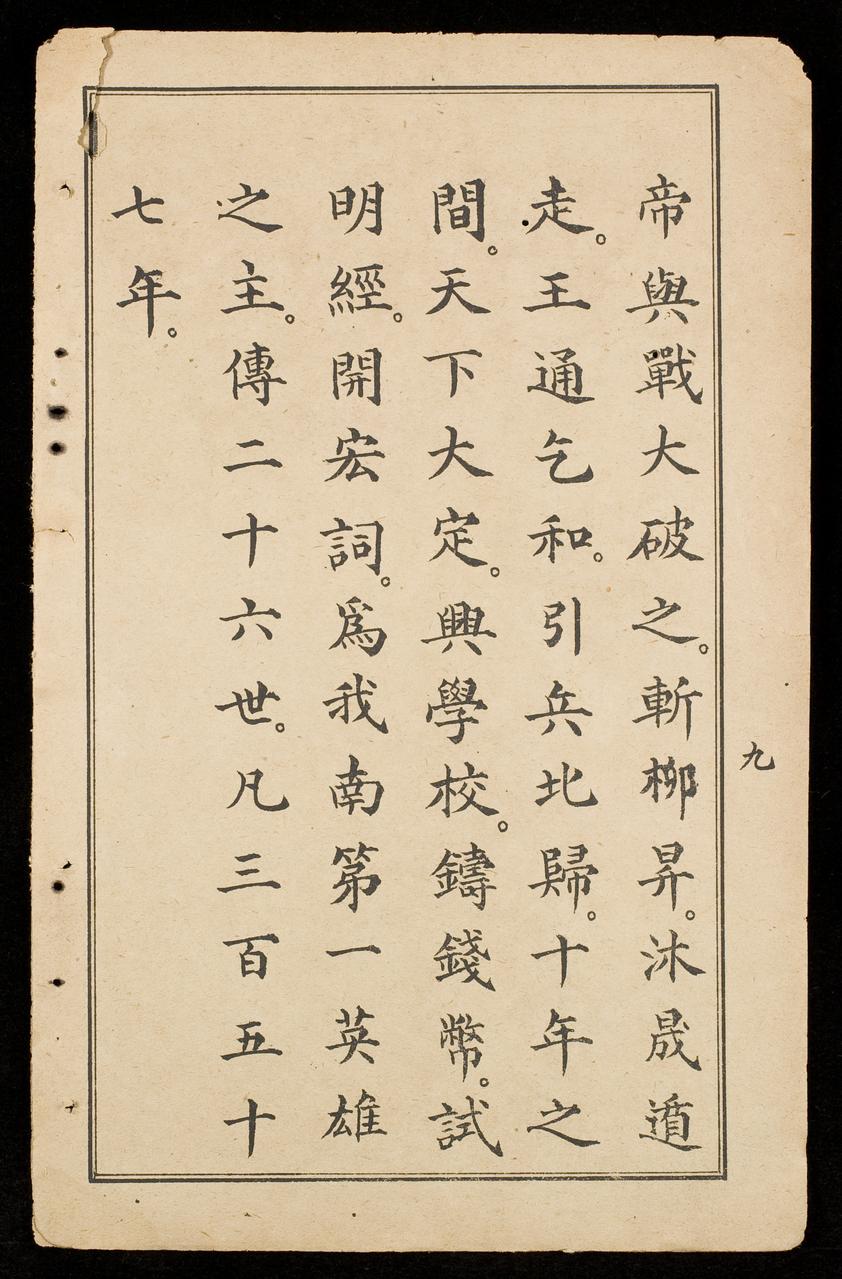 帝與戰大破之。斬柳昇。沐晟遁
走。王通乞和。引兵北歸。十年之
間。天下大定。興學校。鑄錢幣。試
明經。開宏詞。爲我南第一英雄
之主。傳二十六世。凡三百五十
七年。
九